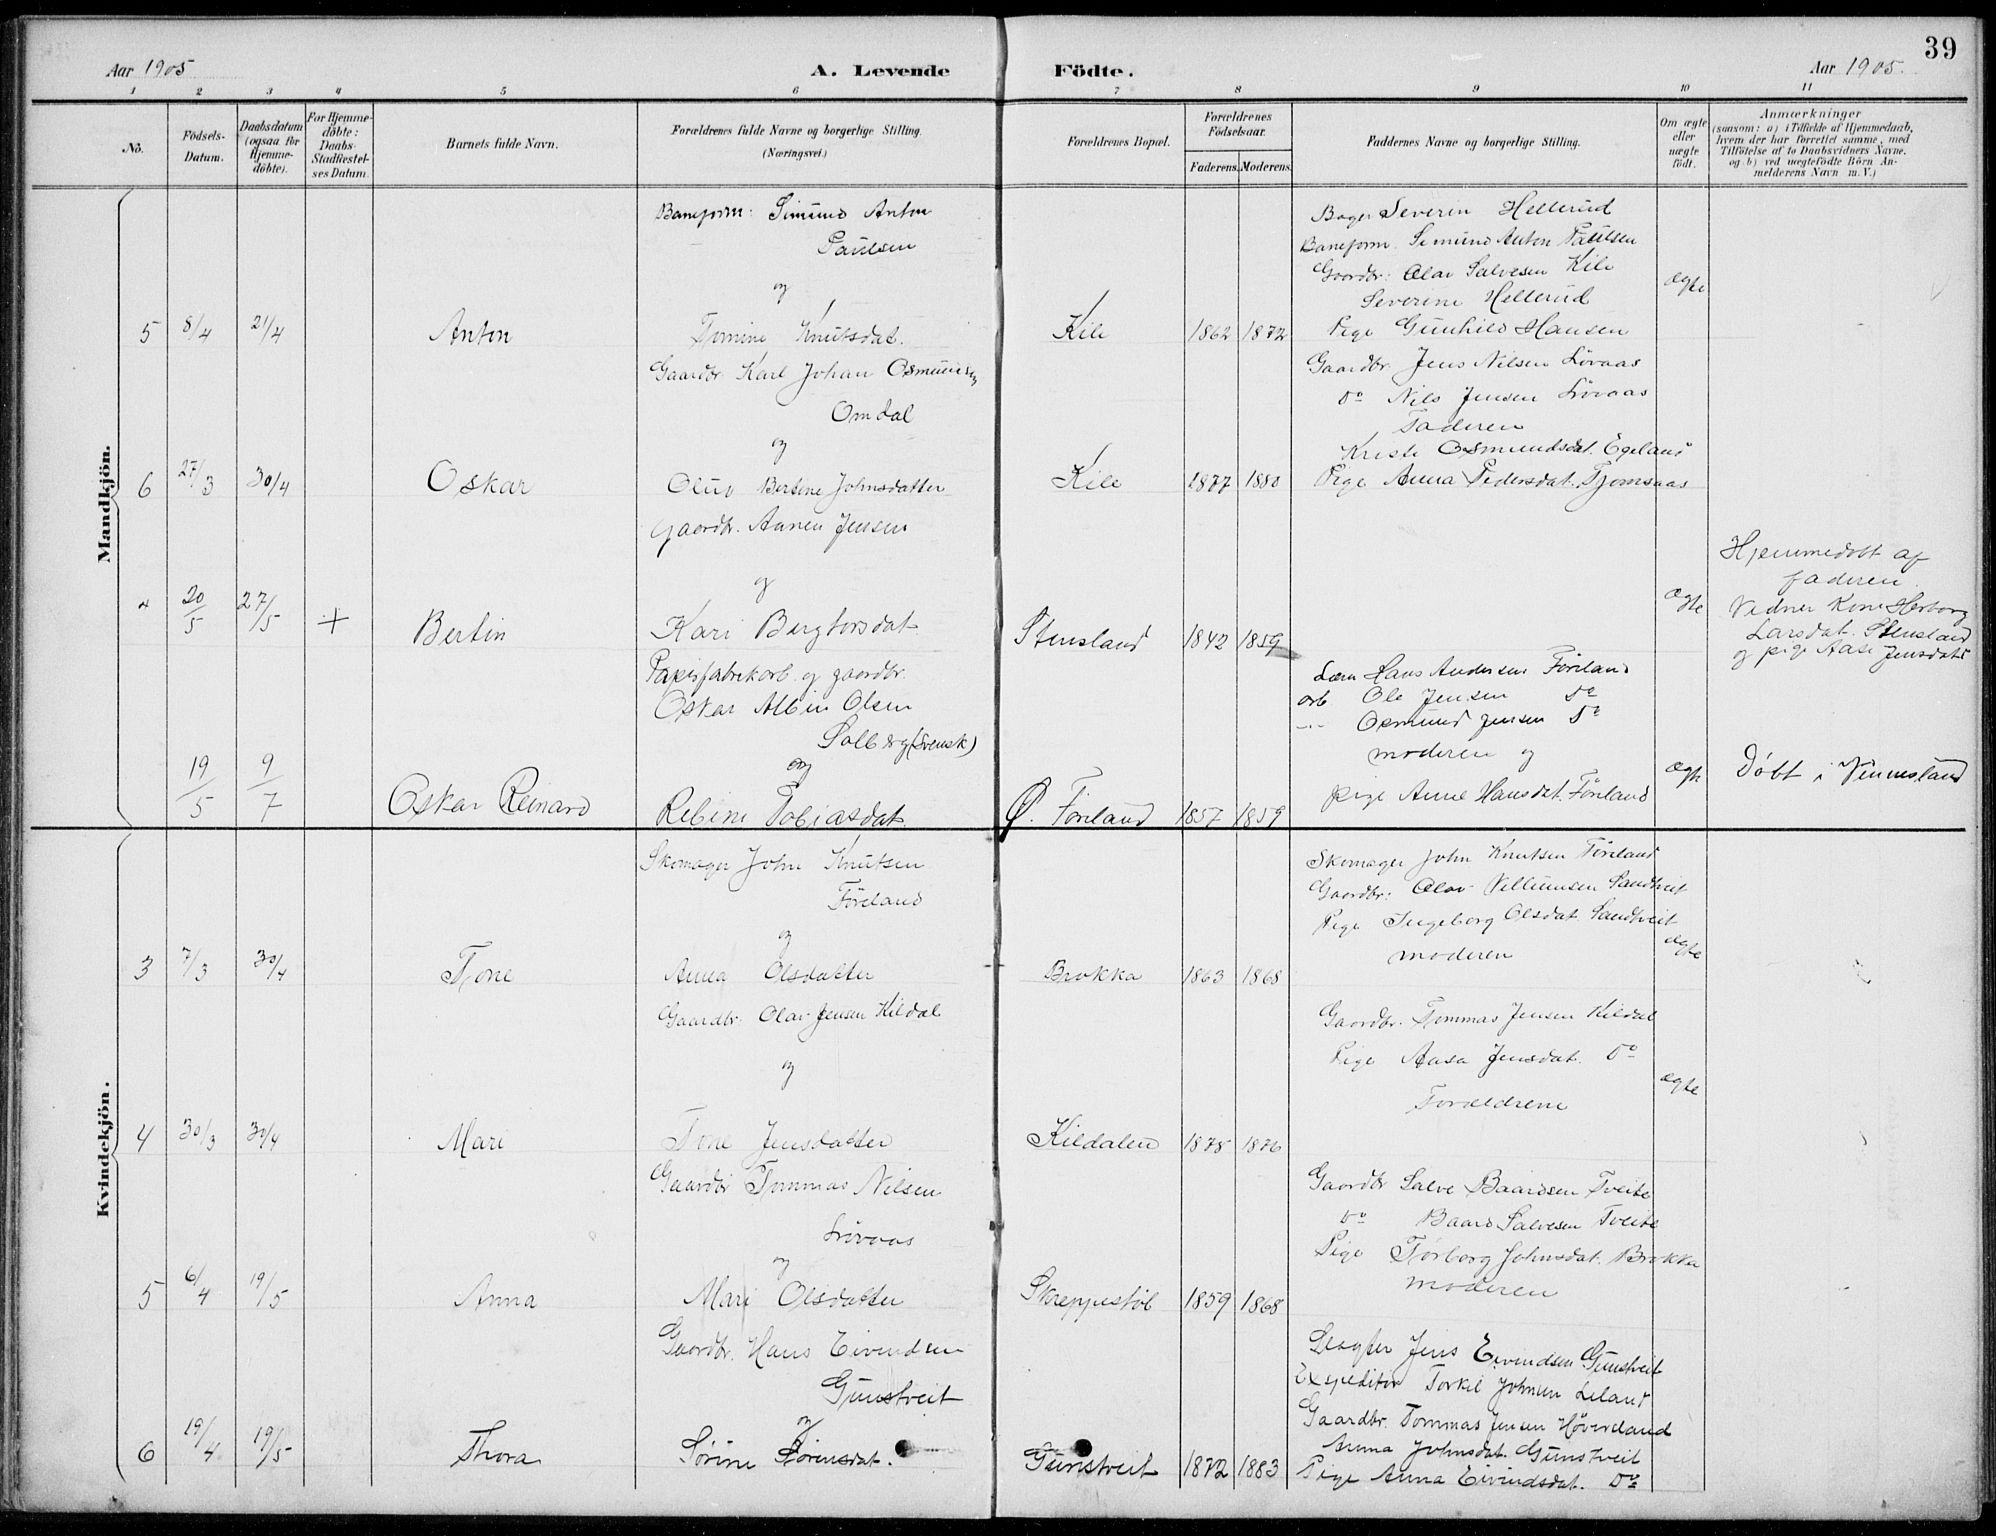 39
Aar 1905
A. Levende Födte.
Aar 1905.
1 2 3 4 5 6 7 8 9 10 11
No.
Födsels-Datum.
Daabsdatum (ogsaa for Hjemme-döbte).
For Hjemme-döbte: Daabs-Stadfæstel-ses Datum.
Barnets fulde Navn.
Forældrenes fulde Navne og borgerlige Stilling.
(Næringsvei.)
Forældrenes Bopæl.
Forældrenes Födselsaar.
Faderens. Moderens.
Faddernes Navne og borgerlige Stilling.
Om ægte eller uægte födt.
Anmærkninger
(saasom: a) i Tilfælde af Hjemmedaab,
hvem der har forrettet samme, med
Tilföielse af to Daabsvidners Navne,
og b) ved uægtefödte Börn An-
melderens Navn m. V.)
Mandkjön.
5 8/4 21/4 Anton
Baneform: Simund Anton
Paulsen
og
Tomine Knutsdat.
Kile 1862 1872
Bager Severin Hellerud
Baneform. Simund Anton Paulsen
Gaardbr: Olav Salvesen Kile
Severine Hellerud
Pige Gunhild Hansen
ægte
6 27/3 30/4 Oskar
Gaardbr Karl Johan Osmundsen
Omdal
og
Oluv Bertine Johnsdatter
Kile 1877 1880
Gaardbr. Jens Nilsen Lövaas
Do Nils Jensen Lövaas
Faderen
Kristi Osmundsdat. Egeland
Pige Anna Pedersdat. Tjomsaas
20/5 27/5 + Bertin
Gaardbr. Aanen Jensen
og
Kari Bergtorsdat
Stensland 1842 1859
ægte
Hjemmedöbt af
faderen.
Vidner Kone Herborg
Larsdat. Stensland
og pige Aase Jensdat
19/5 9/7 Oskar Reinard
Papirfabrikarb. og gaardbr.
Oskar Albin Olsen
Solberg (Svensk)
og
Rebine Tobiasdat.
Ø. Föreland 1857 1859
Hans Andersen Föreland
arb Ole Jensen Do
-"- Osmund Jensen Do
moderen og
pige Anne Hansdat. Föreland
ægte
Döbt i Vennesland
Kvindekjön.
3 7/3 30/4 Tone
Skomager John Knutsen
Föreland
og
Anna Olsdatter
Brokka 1863 1868
Skomager John Knutsen Föreland
Gaardbr: Olav Vellumsen Sandtveit
Pige Ingeborg Olsdat. Sandtveit
moderen
ægte
4 30/3 30/4 Mari
Gaardbr. Olav Jensen Kildal
og
Tone Jensdatter
Kildalen 1875 1876
Gaardbr. Tommas Jensen Kildal
Pige Aasa Jensdat. Do
Forældrene
ægte
5 6/4 19/5 Anna
Gaardbr Tommas Nilsen
Lövaas
og
Mari Olsdatter
Skreppestöl 1859 1868
Gaardbr Salve Baardsen Tveite
Do Baard Salvesen Tveite
Pige Torborg Johnsdat. Brokka
moderen
6 19/4 19/5 Thora
Gaardbr. Hans Eivindsen
Gunstveit
og
Sörine Sörensdat.
Gunstveit 1872 1883
Jens Eivindsen Gunstveit
Expeditör Torkil Johnsen Leland
Gaardbr. Tommas Jensen Höverland
Anna Johnsdat. Gunstveit
Pige Anna Eivindsdat. Do